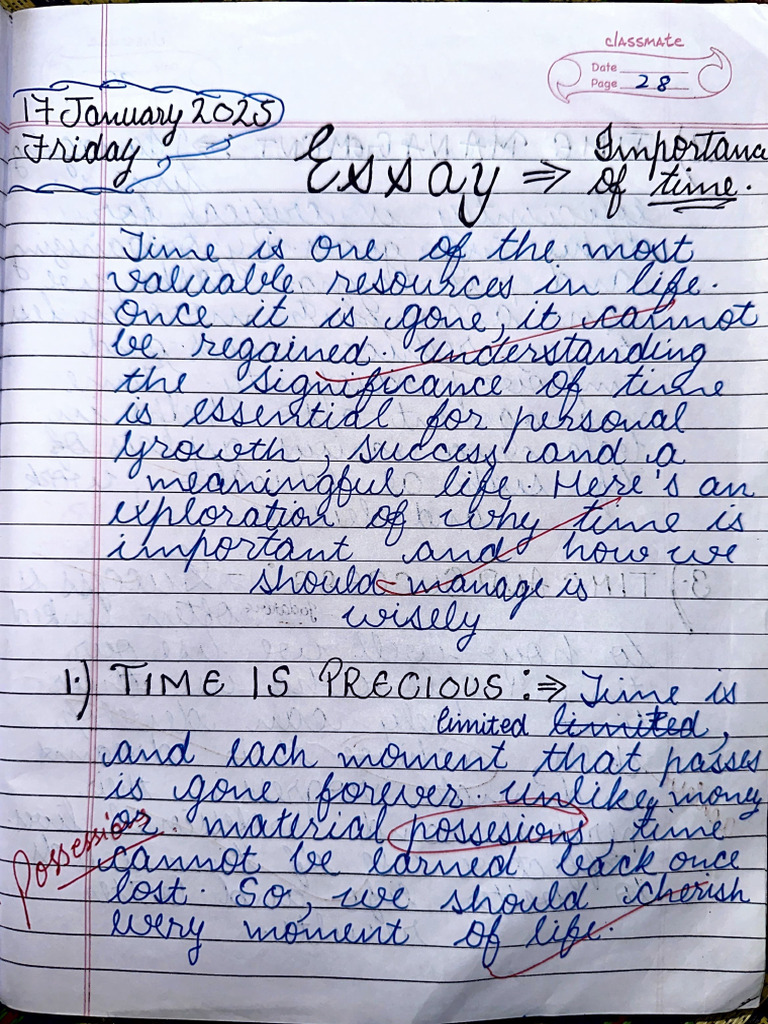 classmate
Date
Page 28
17 January 2025
Friday
Essay ⇒ Importance
of time.
Time is one of the most
valuable resources in life.
once it is gone, it cannot
be regained. Understanding
the significance of time
is essential for personal
growth, success and a
meaningful life. Here's an
exploration of why time is
important and how we
should manage is
wisely
1.) TIME IS PRECIOUS :⇒ Time is
limited limited,
and each moment that passes
is gone forever. Unlike, money
or material possesions, time
Possession
cannot be earned back once
lost. So, we should cherish
every moment of life.